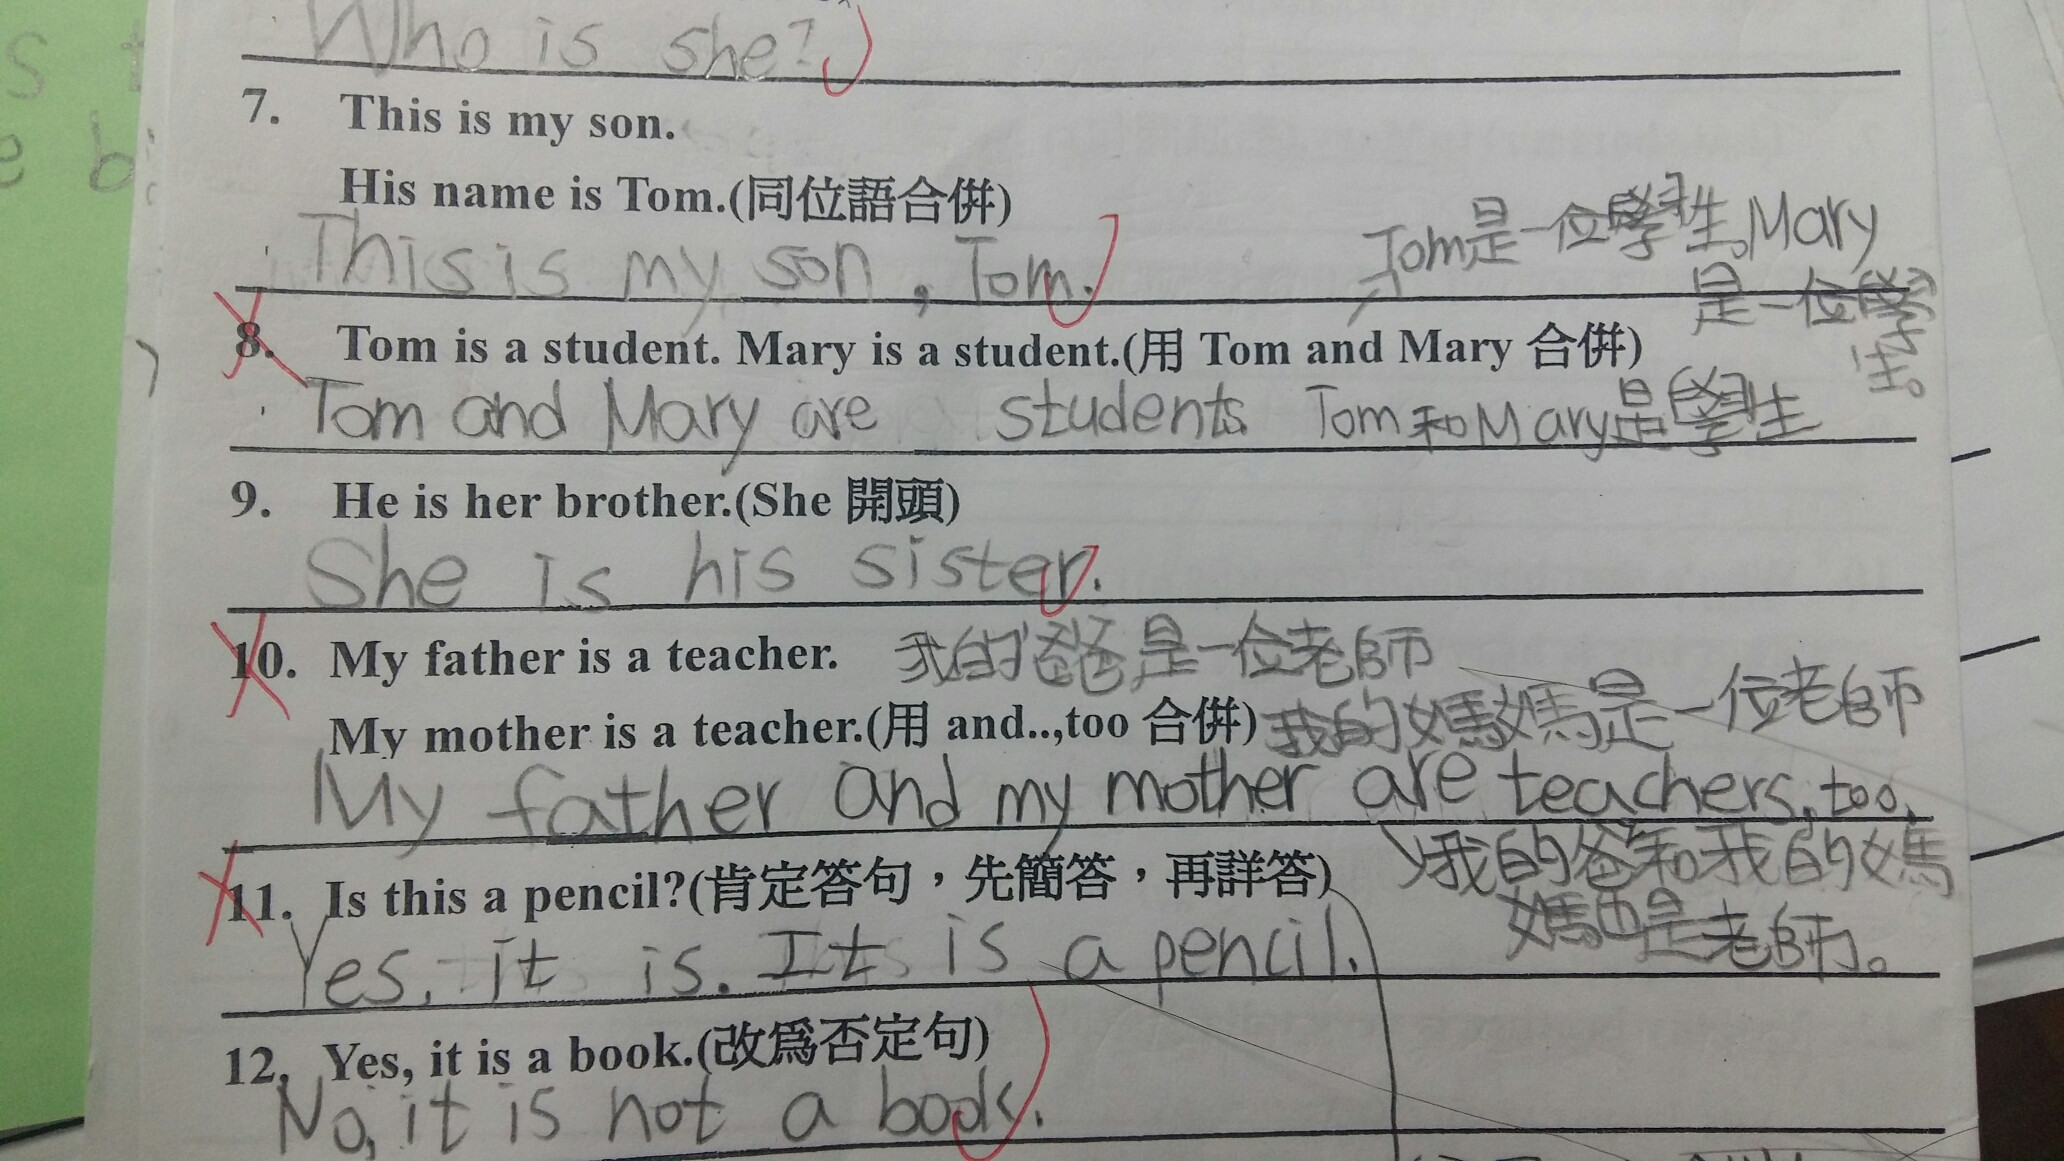 Who is she?
7. This is my son.
His name is Tom.(同位語合倂)
This is my son, Tom.
Tom是一位學生。Mary
是一位學
生。
8. Tom is a student. Mary is a student.(用 Tom and Mary 合倂)
Tom and Mary are students. Tom和Mary是學生
9. He is her brother.(She 開頭)
She is his sister.
10. My father is a teacher. 我的爸爸是一位老師
My mother is a teacher.(用 and..,too 合倂) 我的媽媽是一位老師
My father and my mother are teachers, too.
我的爸和我的媽
媽也是老師。
11. Is this a pencil?(肯定答句，先簡答，再詳答)
Yes, it is. It is a pencil.
12. Yes, it is a book.(改爲否定句)
No, it is not a book.